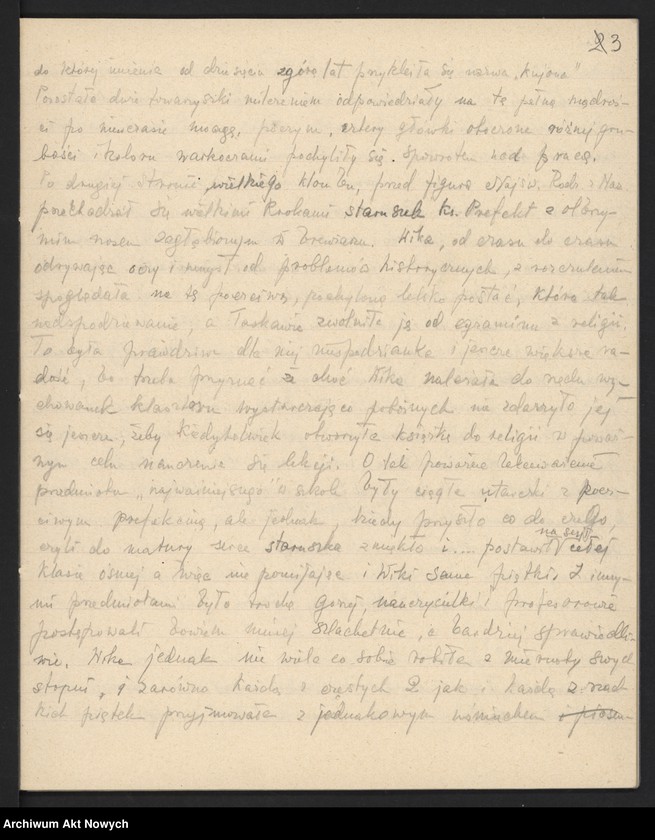 23
do której imienia od dziesięciu zgórą lat przykleiła się nazwa „Kujona”
Pozostałe dwie towarzyszki milczeniem odpowiedziały na tę pełną mądroś-
ci po niewczasie uwagę, poczym, cztery główki otoczone różnej gru-
bości i koloru warkoczami pochyliły się spowrotem nad pracą.
Po drugiej stronie wielkiego klombu, przed figurą Najśw. Rodz.
przechadzał się wielkimi krokami staruszek ks. Prefekt z olbrzy-
mim nosem zagłębionym w brewiarzu. Wika, od czasu do czasu
odrywając oczy i myśl od problemów historycznych, z rozczuleniem
spoglądała na tę poczciwą, pochyloną lekko postać, która tak
niespodziewanie, a łaskawie zwolniła ją od egzaminu z religii.
To była prawdziwa dla niej niespodzianka i jeszcze większa ra-
dość, bo trzeba przyznać że choć Wika należała do rzędu wy-
chowanek klasztoru wystarczająco pobożnych nie zdarzyło jej
się jeszcze, żeby kiedykolwiek otworzyła książkę do religii w poważ-
nym celu nauczenia się lekcji. O tak poważne lekceważenie
przedmiotu „najważniejszego” w szkole były ciągłe utarczki z pocz-
ciwym prefektem, ale jednak, kiedy przyszło co do czego,
czyli do matury serce staruszka zmiękło i .... postawił na szyję całej
klasie ósmej a więc nie pomijając i Wiki same piątki. Z inny-
mi przedmiotami było trochę gorzej nauczycielki i profesorowie
postępowali bowiem mniej szlachetnie, a bardziej sprawiedli-
wie. Wika jednak nie wiele co sobie robiła z swych
stopni, i zarówno każdą z częstych 2 jak i każdą z rzad-
kich piątek przyjmowała z jednakowym uśmiechem
Archiwum Akt Nowych